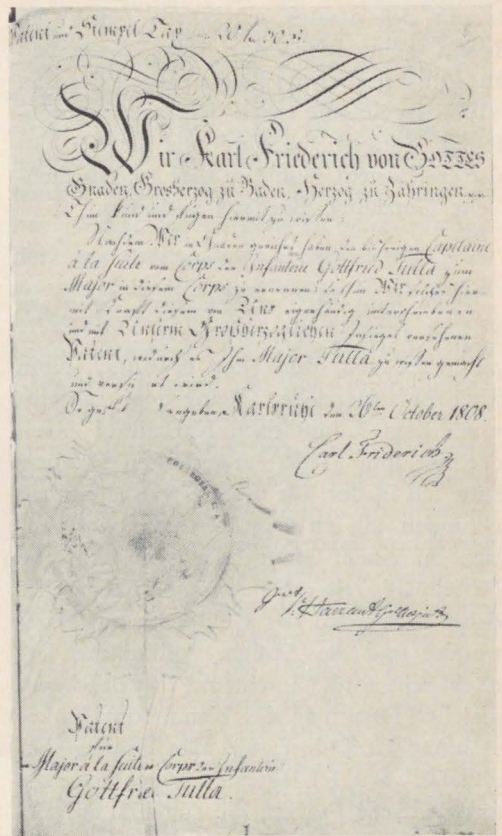 Patent und Stempel Tax 20 fl. 30 Xr.
Wir Karl Friederich von GOTTES
Gnaden, Grosherzog zu Baden, Herzog zu Zähringen
Thun kund und fügen hiermit zu wissen:
Nachdem Wir in Gnaden geruhet haben, den bisherigen Capitaine
à la Suite vom Corps der Infanterie Gottfried Tulla zum
Major in diesem Corps zu ernennen; so thun Wir dieses hier-
mit Kraft diesem von Uns eigenhändig unterschriebenen
und mit Unserm Großherzoglichen Insiegel versehenen
Patent, wodurch es Ihm Major Tulla zu wissen gemacht
und wird.
Gegeben Karlsruhe den 26ten October 1808.
Carl Friderich
Patent
für
Major à la Suite Corps der Infanterie
Gottfried Tulla.